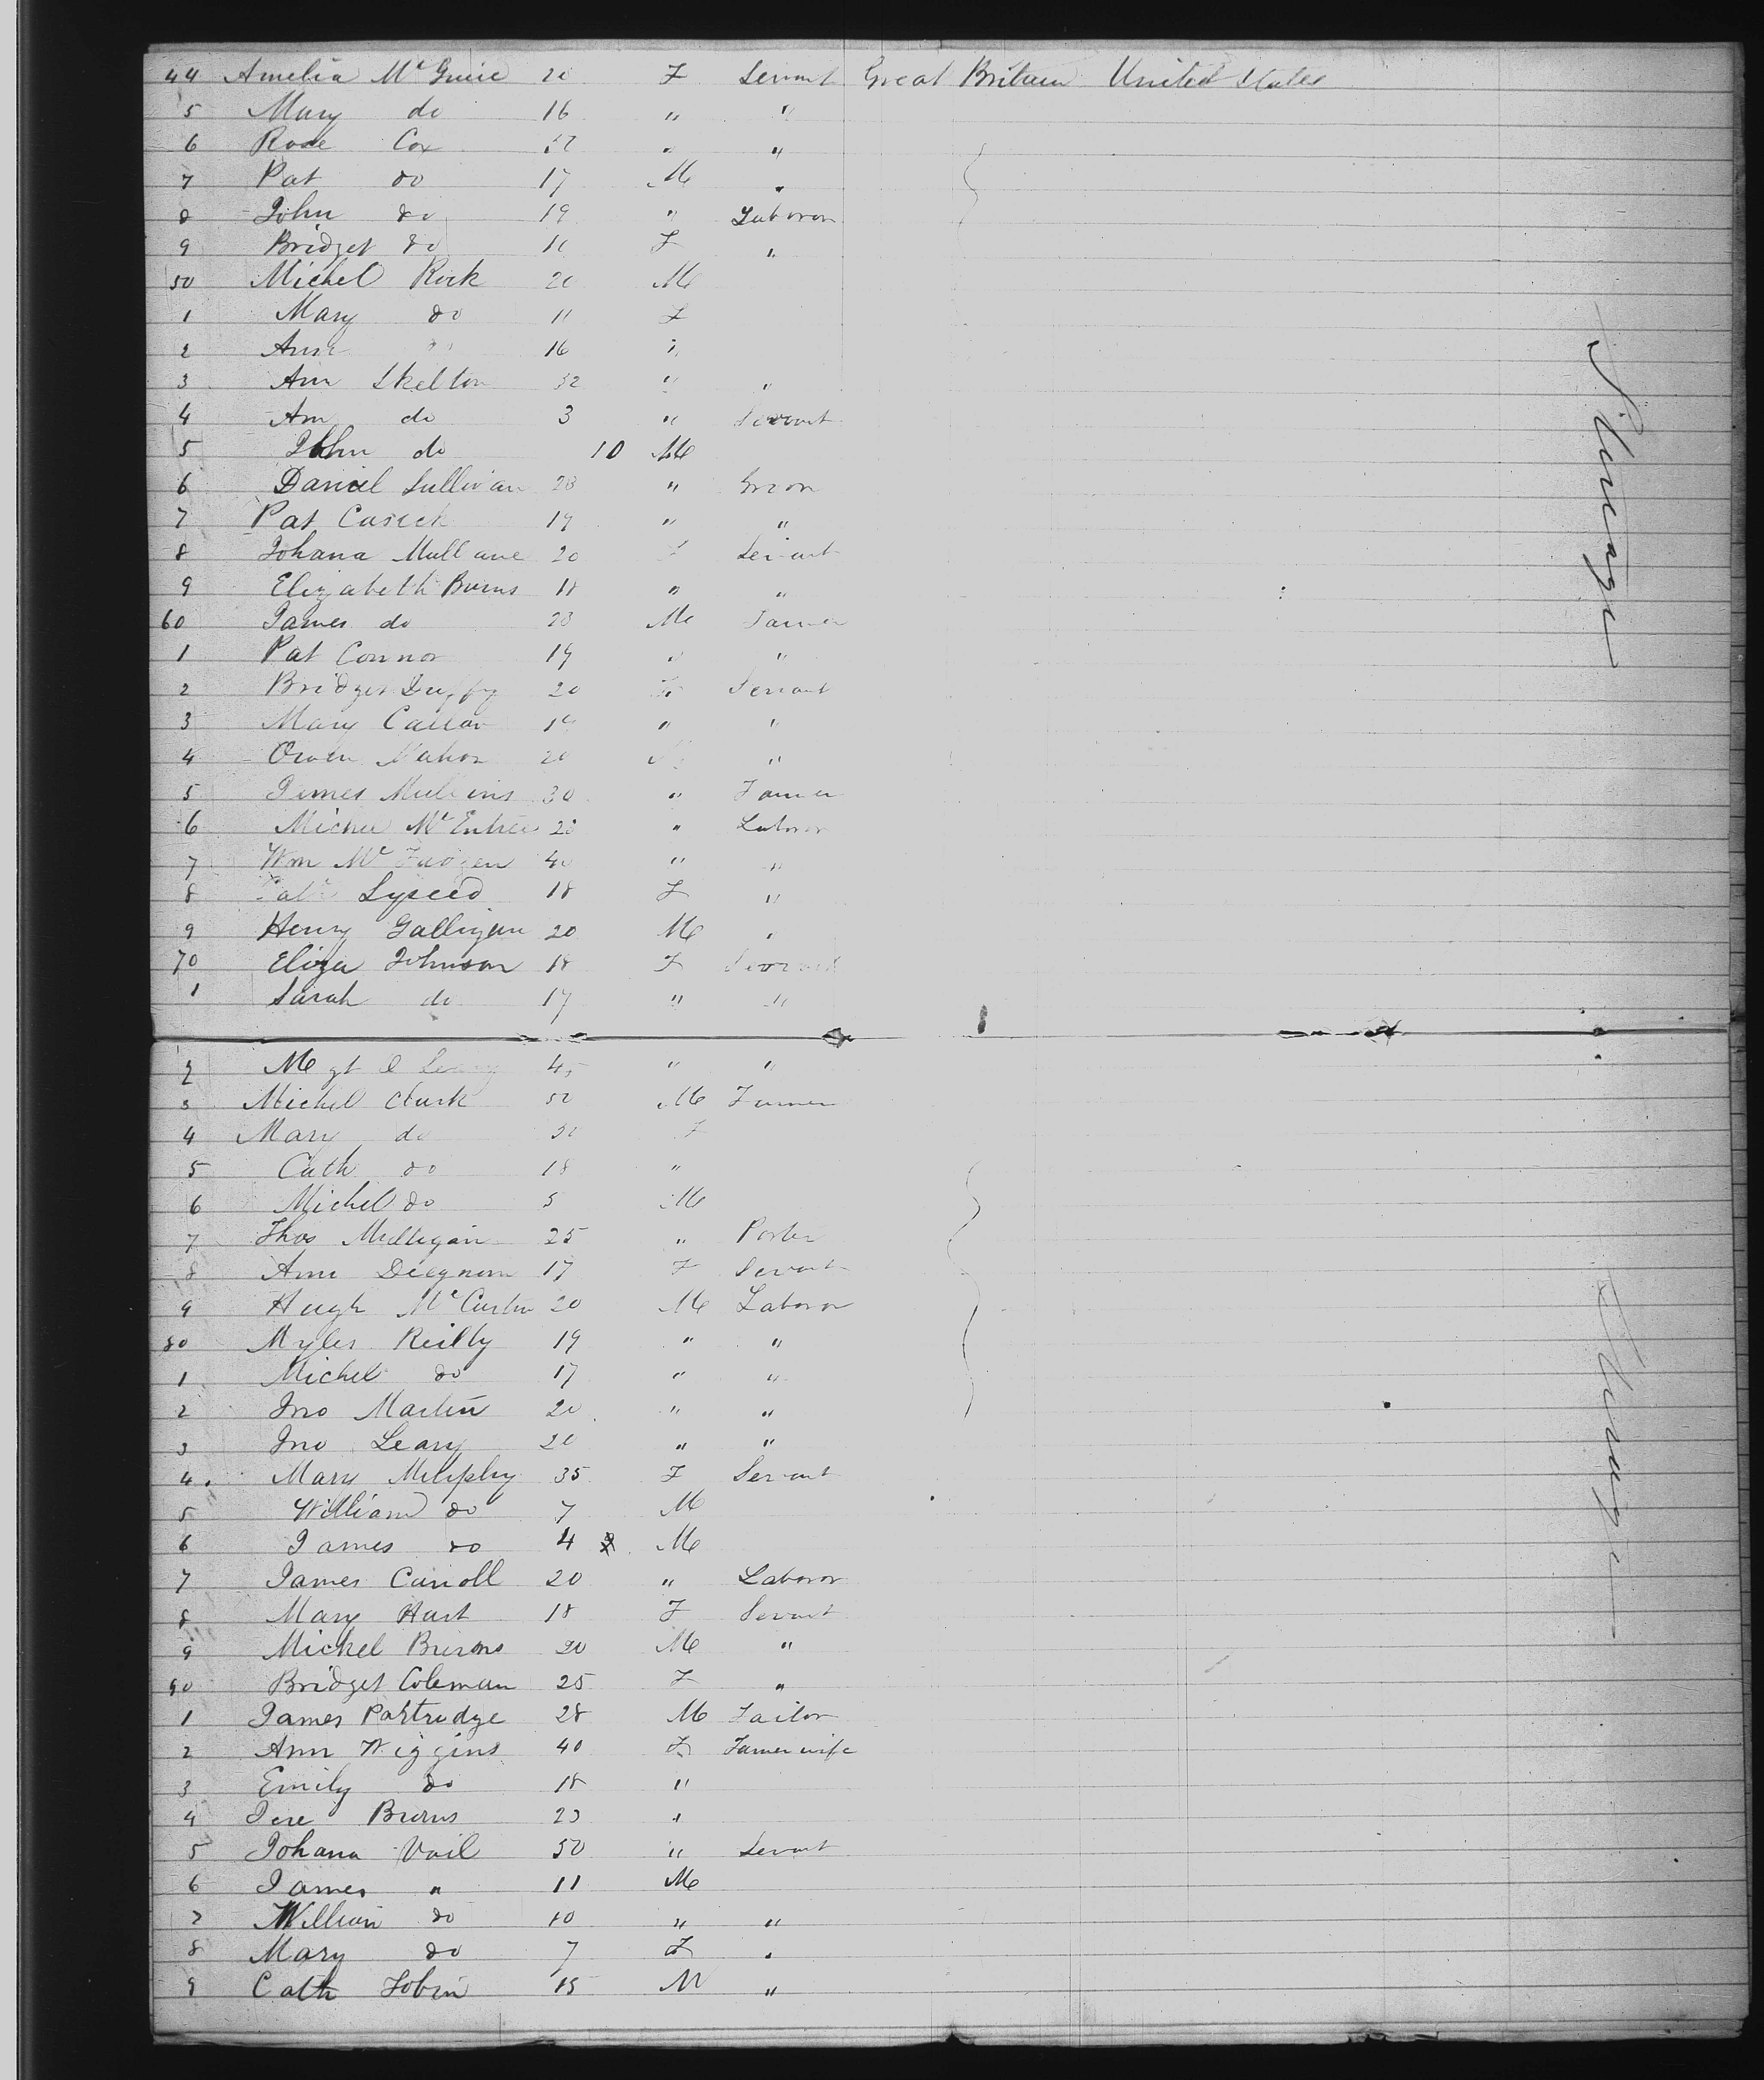 44 Amelia McGuire 20 F Servant Great Britain United States
5 Mary do 16 " "
6 Rose Cox " "
7 Pat do 17 M "
8 John do 19 " Laboror
9 Bridget do F "
50 Michel Rock 20 M
1 Mary do 11 F
2 Ann 16 "
3 Ann Skelton 32 " "
4 Ann do 3 " Servant
5 John do 10 M
6 Daniel Sullivan 28 "
7 Pat 19 " "
8 Johana Mullane 20 F Servant
9 Elizabeth Burns 18 " "
60 James do 28 M Farmer
1 Pat Connor 19 " "
2 Bridget Duffy 20 F Servant
3 Mary " "
4 Owen Mahon 20 M "
5 James Mullins 30 " Farmer
6 Michel " Laboror
7 Wm Mc 40 " "
8 18 F "
9 Henry Galligan 20 M "
70 Eliza Johnson 18 F Servant
1 Sarah do 17 " "
2 Mgt O Leary 45 " "
3 Michel Clark 50 M Farmer
4 Mary do 50 F
5 Cath do 18 "
6 Michel do 5 M
7 Thos Mulligan 25 " Porter
8 Ann 17 F Servant
9 Hugh 20 M Laboror
80 Myles Reilly 19 " "
1 Michel do 17 " "
2 Jno Martin 20 " "
3 Jno Leary 20 " "
4 Mary Murphy 35 F Servant
5 William do 7 M
6 James do 4 M
7 James Carroll 20 " Laboror
8 Mary Hart 18 F Servant
9 Michel Burns 20 M "
90 Bridget Coleman 25 F "
1 James Partridge 28 M Tailor
2 Ann Wiggins 40 F Farmer wife
3 Emily do 18 "
4 Burns 23 "
5 Johana Vail 50 " Servant
6 James " 11 M
7 William do 10 " "
8 Mary do 7 F "
9 Cath Tobin 15 M "
Steerage
Steerage